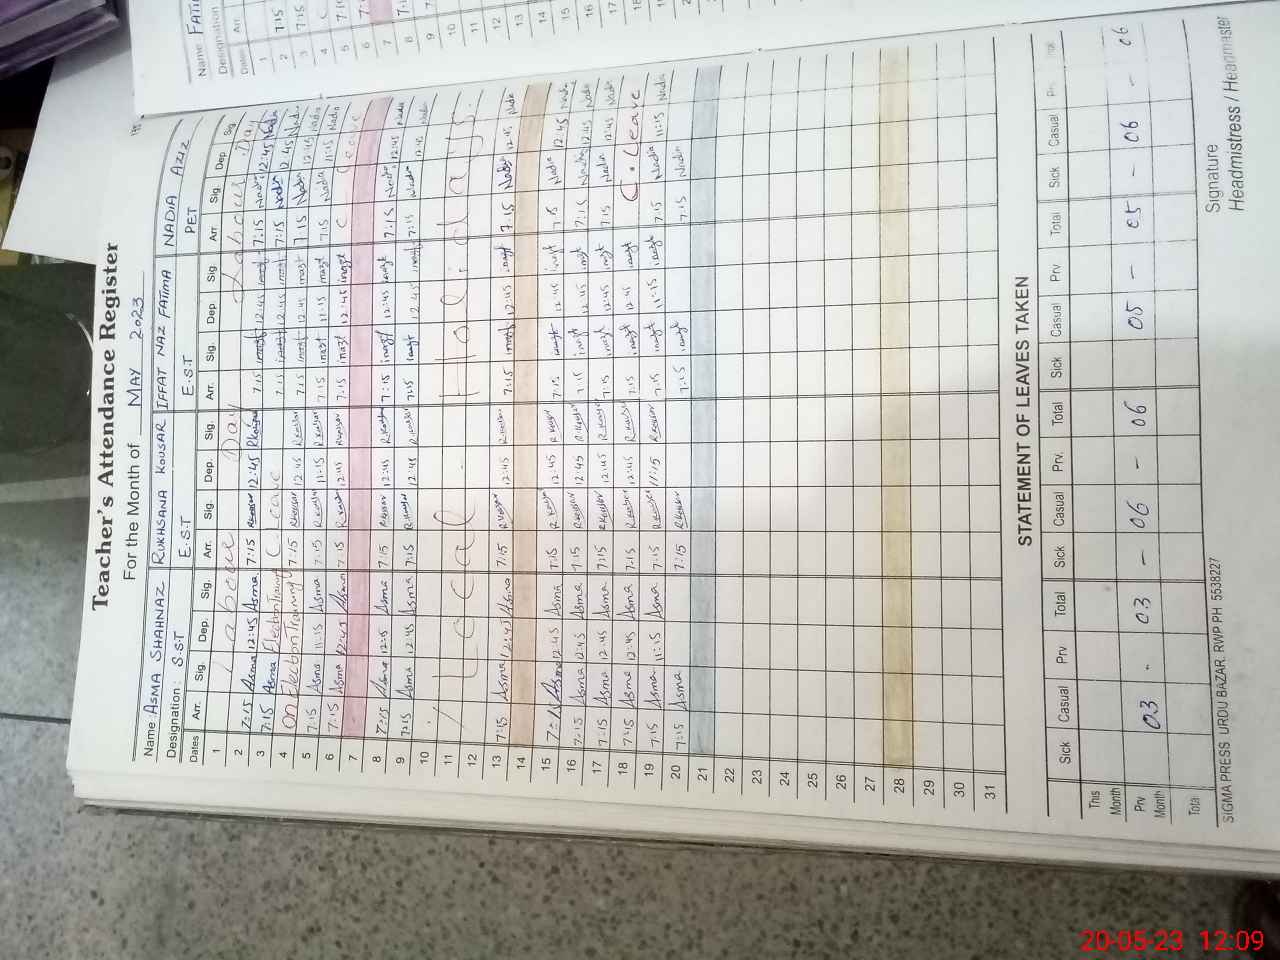 Teacher's Attendance Register
For the Month of MAY 2023
Name: ASMA SHAHNAZ RUKHSANA KOUSAR IFFAT NAZ FATIMA NADIA AZIZ
Designation: S.S.T E.S.T E.S.T PET
Dates Arr. Sig. Dep. Sig. Arr. Sig. Dep. Sig. Arr. Sig. Dep. Sig. Arr. Sig. Dep. Sig.
1 Labour Day Labour Day
2 7:15 Asma 12:45 Asma 7:15 RKousar 12:45 RKousar 7:15 inazf 12:45 inazf 7:15 Nadia 12:45 Nadia
3 7:15 Asma Election Training C. Leave 7:15 inazf 12:45 inazf 7:15 Nadia 12:45 Nadia
4 On Election Training 7:15 RKousar 12:45 RKousar 7:15 inazf 12:45 inazf 7:15 Nadia 12:45 Nadia
5 7:15 Asma 11:15 Asma 7:15 RKousar 11:15 RKousar 7:15 inazf 11:15 inazf 7:15 Nadia 11:15 Nadia
6 7:15 Asma 12:45 Asma 7:15 RKousar 12:45 RKousar 7:15 inazf 12:45 inazf C Leave
7
8 7:15 Asma 12:45 Asma 7:15 RKousar 12:45 RKousar 7:15 inazf 12:45 inazf 7:15 Nadia 12:45 Nadia
9 7:15 Asma 12:45 Asma 7:15 RKousar 12:45 RKousar 7:15 inazf 12:45 inazf 7:15 Nadia 12:45 Nadia
10
11 Local Holidays
12
13 7:15 Asma 12:45 Asma 7:15 RKousar 12:45 RKousar 7:15 inazf 12:45 inazf 7:15 Nadia 12:45 Nadia
14
15 7:15 Asma 12:45 Asma 7:15 RKousar 12:45 RKousar 7:15 inazf 12:45 inazf 7:15 Nadia 12:45 Nadia
16 7:15 Asma 12:45 Asma 7:15 RKousar 12:45 RKousar 7:15 inazf 12:45 inazf 7:15 Nadia 12:45 Nadia
17 7:15 Asma 12:45 Asma 7:15 RKousar 12:45 RKousar 7:15 inazf 12:45 inazf 7:15 Nadia 12:45 Nadia
18 7:15 Asma 12:45 Asma 7:15 RKousar 12:45 RKousar 7:15 inazf 12:45 inazf C. Leave
19 7:15 Asma 11:15 Asma 7:15 RKousar 11:15 RKousar 7:15 inazf 11:15 inazf 7:15 Nadia 11:15 Nadia
20 7:15 Asma 7:15 RKousar 7:15 inazf 7:15 Nadia
21
22
23
24
25
26
27
28
29
30
31
STATEMENT OF LEAVES TAKEN
Sick Casual Prv Total Sick Casual Prv. Total Sick Casual Prv Total Sick Casual Prv.
This Month
Prv Month 03 - 03 - 06 - 06 05 - 05 - 06 - 06
Total
SIGMA PRESS URDU BAZAR. RWP PH 5538227
Signature
Headmistress / Headmaster
Name
Designation
Dates Arr.
1
2 7:15
3 7:15
4
5
6
7
8
9
10
11
12
13
14
15
16
17
18
20-05-23 12:09